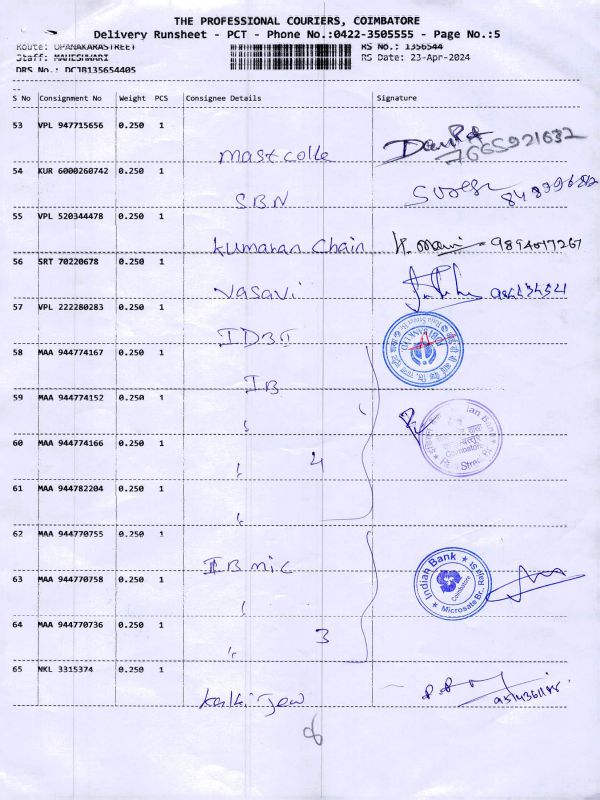 THE PROFESSIONAL COURIERS, COIMBATORE
Delivery Runsheet - PCT - Phone No.:0422-3505555 - Page No.:5
Route: OPANAKARASTREET RS No.: 1356544
Staff: MAHESHWARI RS Date: 23-Apr-2024
DRS No.: DCJB135654405
S No Consignment No Weight PCS Consignee Details Signature
53 VPL 947715656 0.250 1
mastcolle
54 KUR 6000260742 0.250 1
SBN
55 VPL 520344478 0.250 1
Kumaran Chain K. Mani - 9894017267
56 SRT 70220678 0.250 1
Vasavi
57 VPL 222280283 0.250 1
IDBI
58 MAA 944774167 0.250 1
IB
59 MAA 944774152 0.250 1
60 MAA 944774166 0.250 1
4
61 MAA 944782204 0.250 1
62 MAA 944770755 0.250 1
IB mic
Indian Bank
Coimbatore
63 MAA 944770758 0.250 1
64 MAA 944770736 0.250 1
3
65 NKL 3315374 0.250 1
Kalki Jew